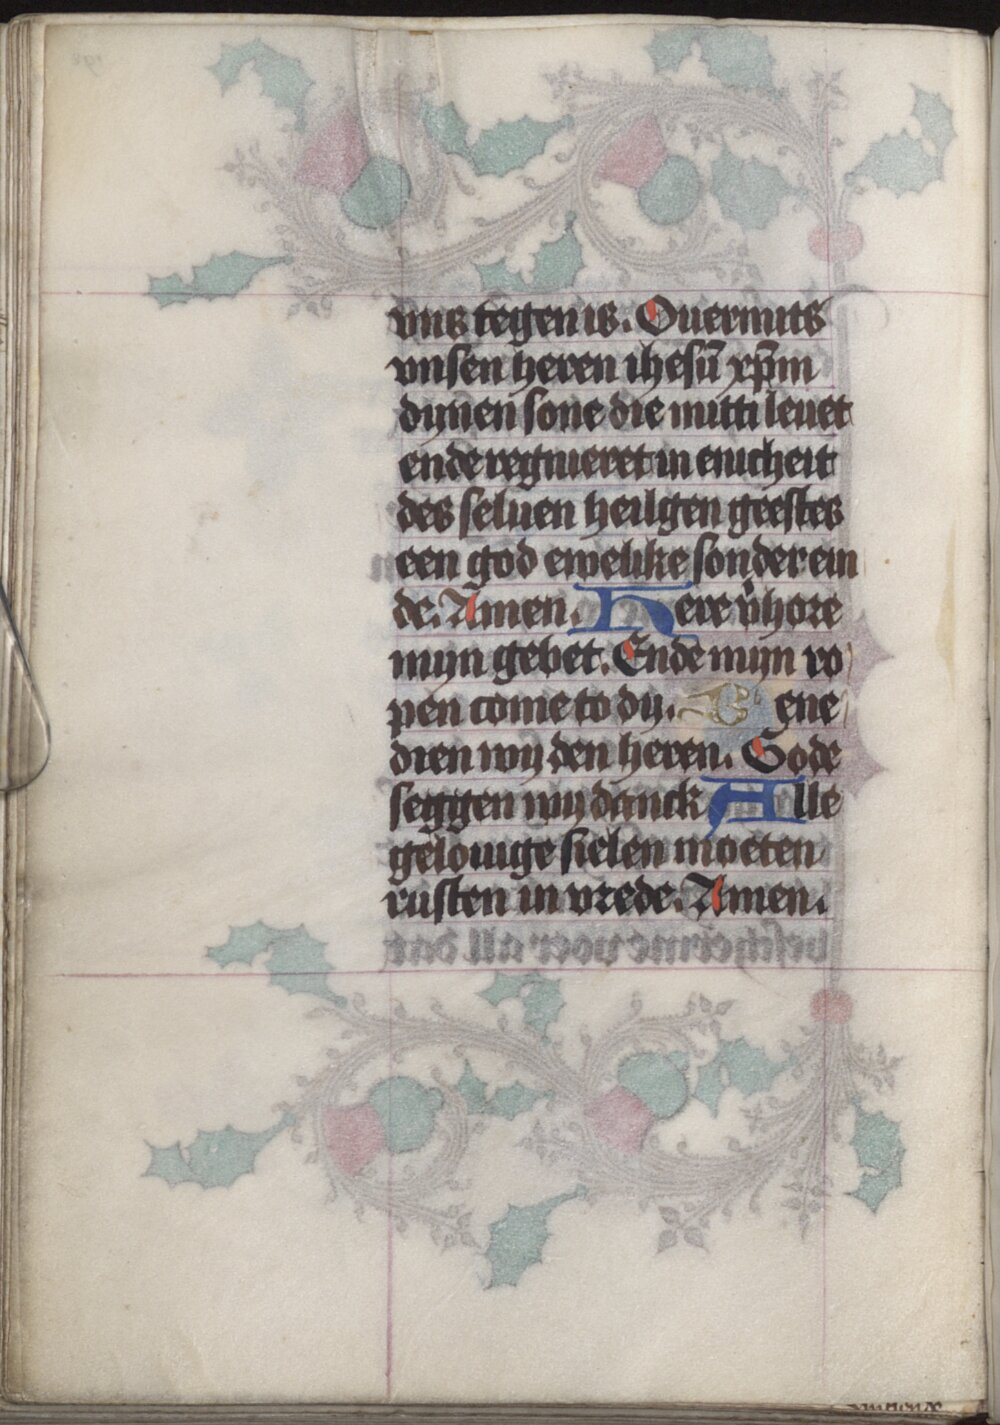 vns tegen is. Ouermits
vnsen heren ihesū xp̄m
dynen sone die mitti leuet
ende regnieret in enicheit
des seluen heilgen geestes
een god ewelike sonder ein
de. Amen. Here v̄hore
myn gebet. Ende myn ro
pen come to dy. Bene
dien wy den heren. Gode
seggen wy danck Alle
gelouige sielen moeten
rusten in vrede. Amen.